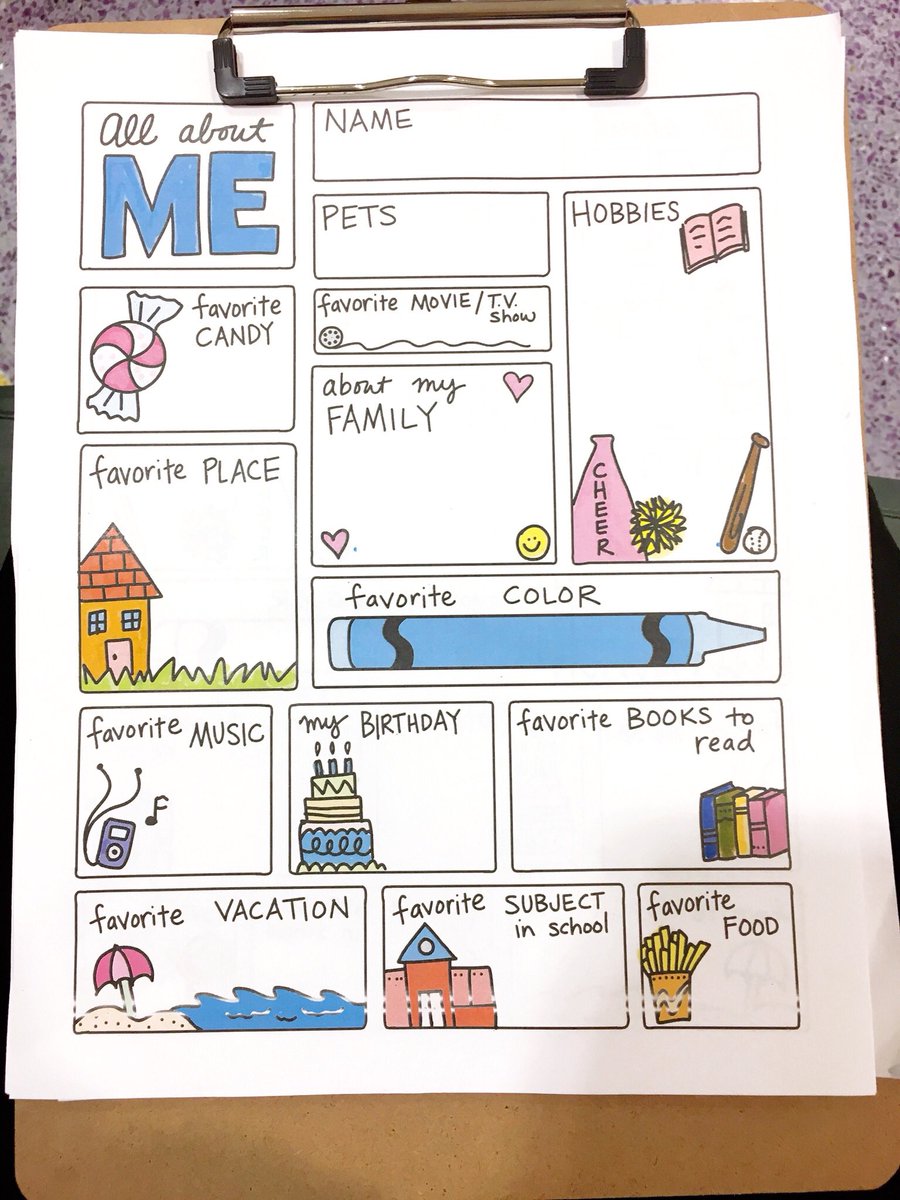 All about
ME
NAME
PETS
HOBBIES
favorite
CANDY
favorite MOVIE/T.V.
show
about my
FAMILY
favorite PLACE
CHEER
favorite COLOR
favorite MUSIC
my BIRTHDAY
favorite BOOKS to
read
favorite VACATION
favorite SUBJECT
in school
favorite
FOOD